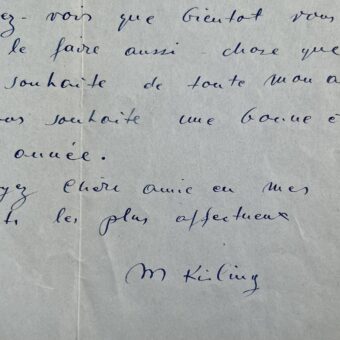 ez-vous que bientot vous
le faire aussi - chose que
souhaite de toute mon a
us souhaite une bonne e
année.
yez chère amie en mes
ts les plus affectueux
M Kisling